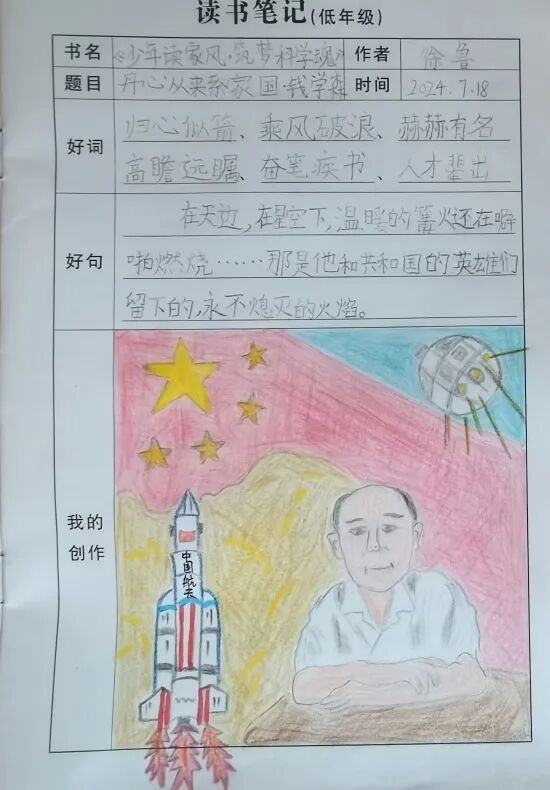 读书笔记(低年级)
书名 《少年读家风·筑梦科学魂》 作者 徐鲁
题目 丹心从来系家国·钱学森 时间 2024.7.18
好词
归心似箭、乘风破浪、赫赫有名
高瞻远瞩、奋笔疾书、人才辈出
好句
在天边,在星空下,温暖的篝火还在噼
啪燃烧……那是他和共和国的英雄们
留下的,永不熄灭的火焰。
我的
创作
中国航天